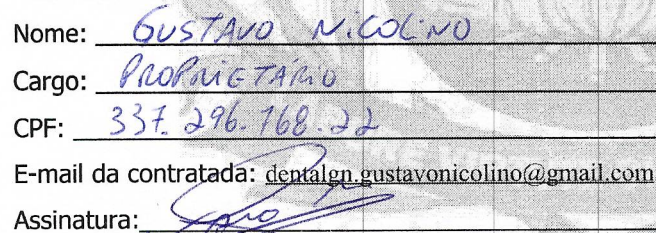 Nome: GUSTAVO NICOLINO
Cargo: PROPRIETÁRIO
CPF: 337.296.768-22
E-mail da contratada: dentalgn.gustavonicolino@gmail.com
Assinatura: